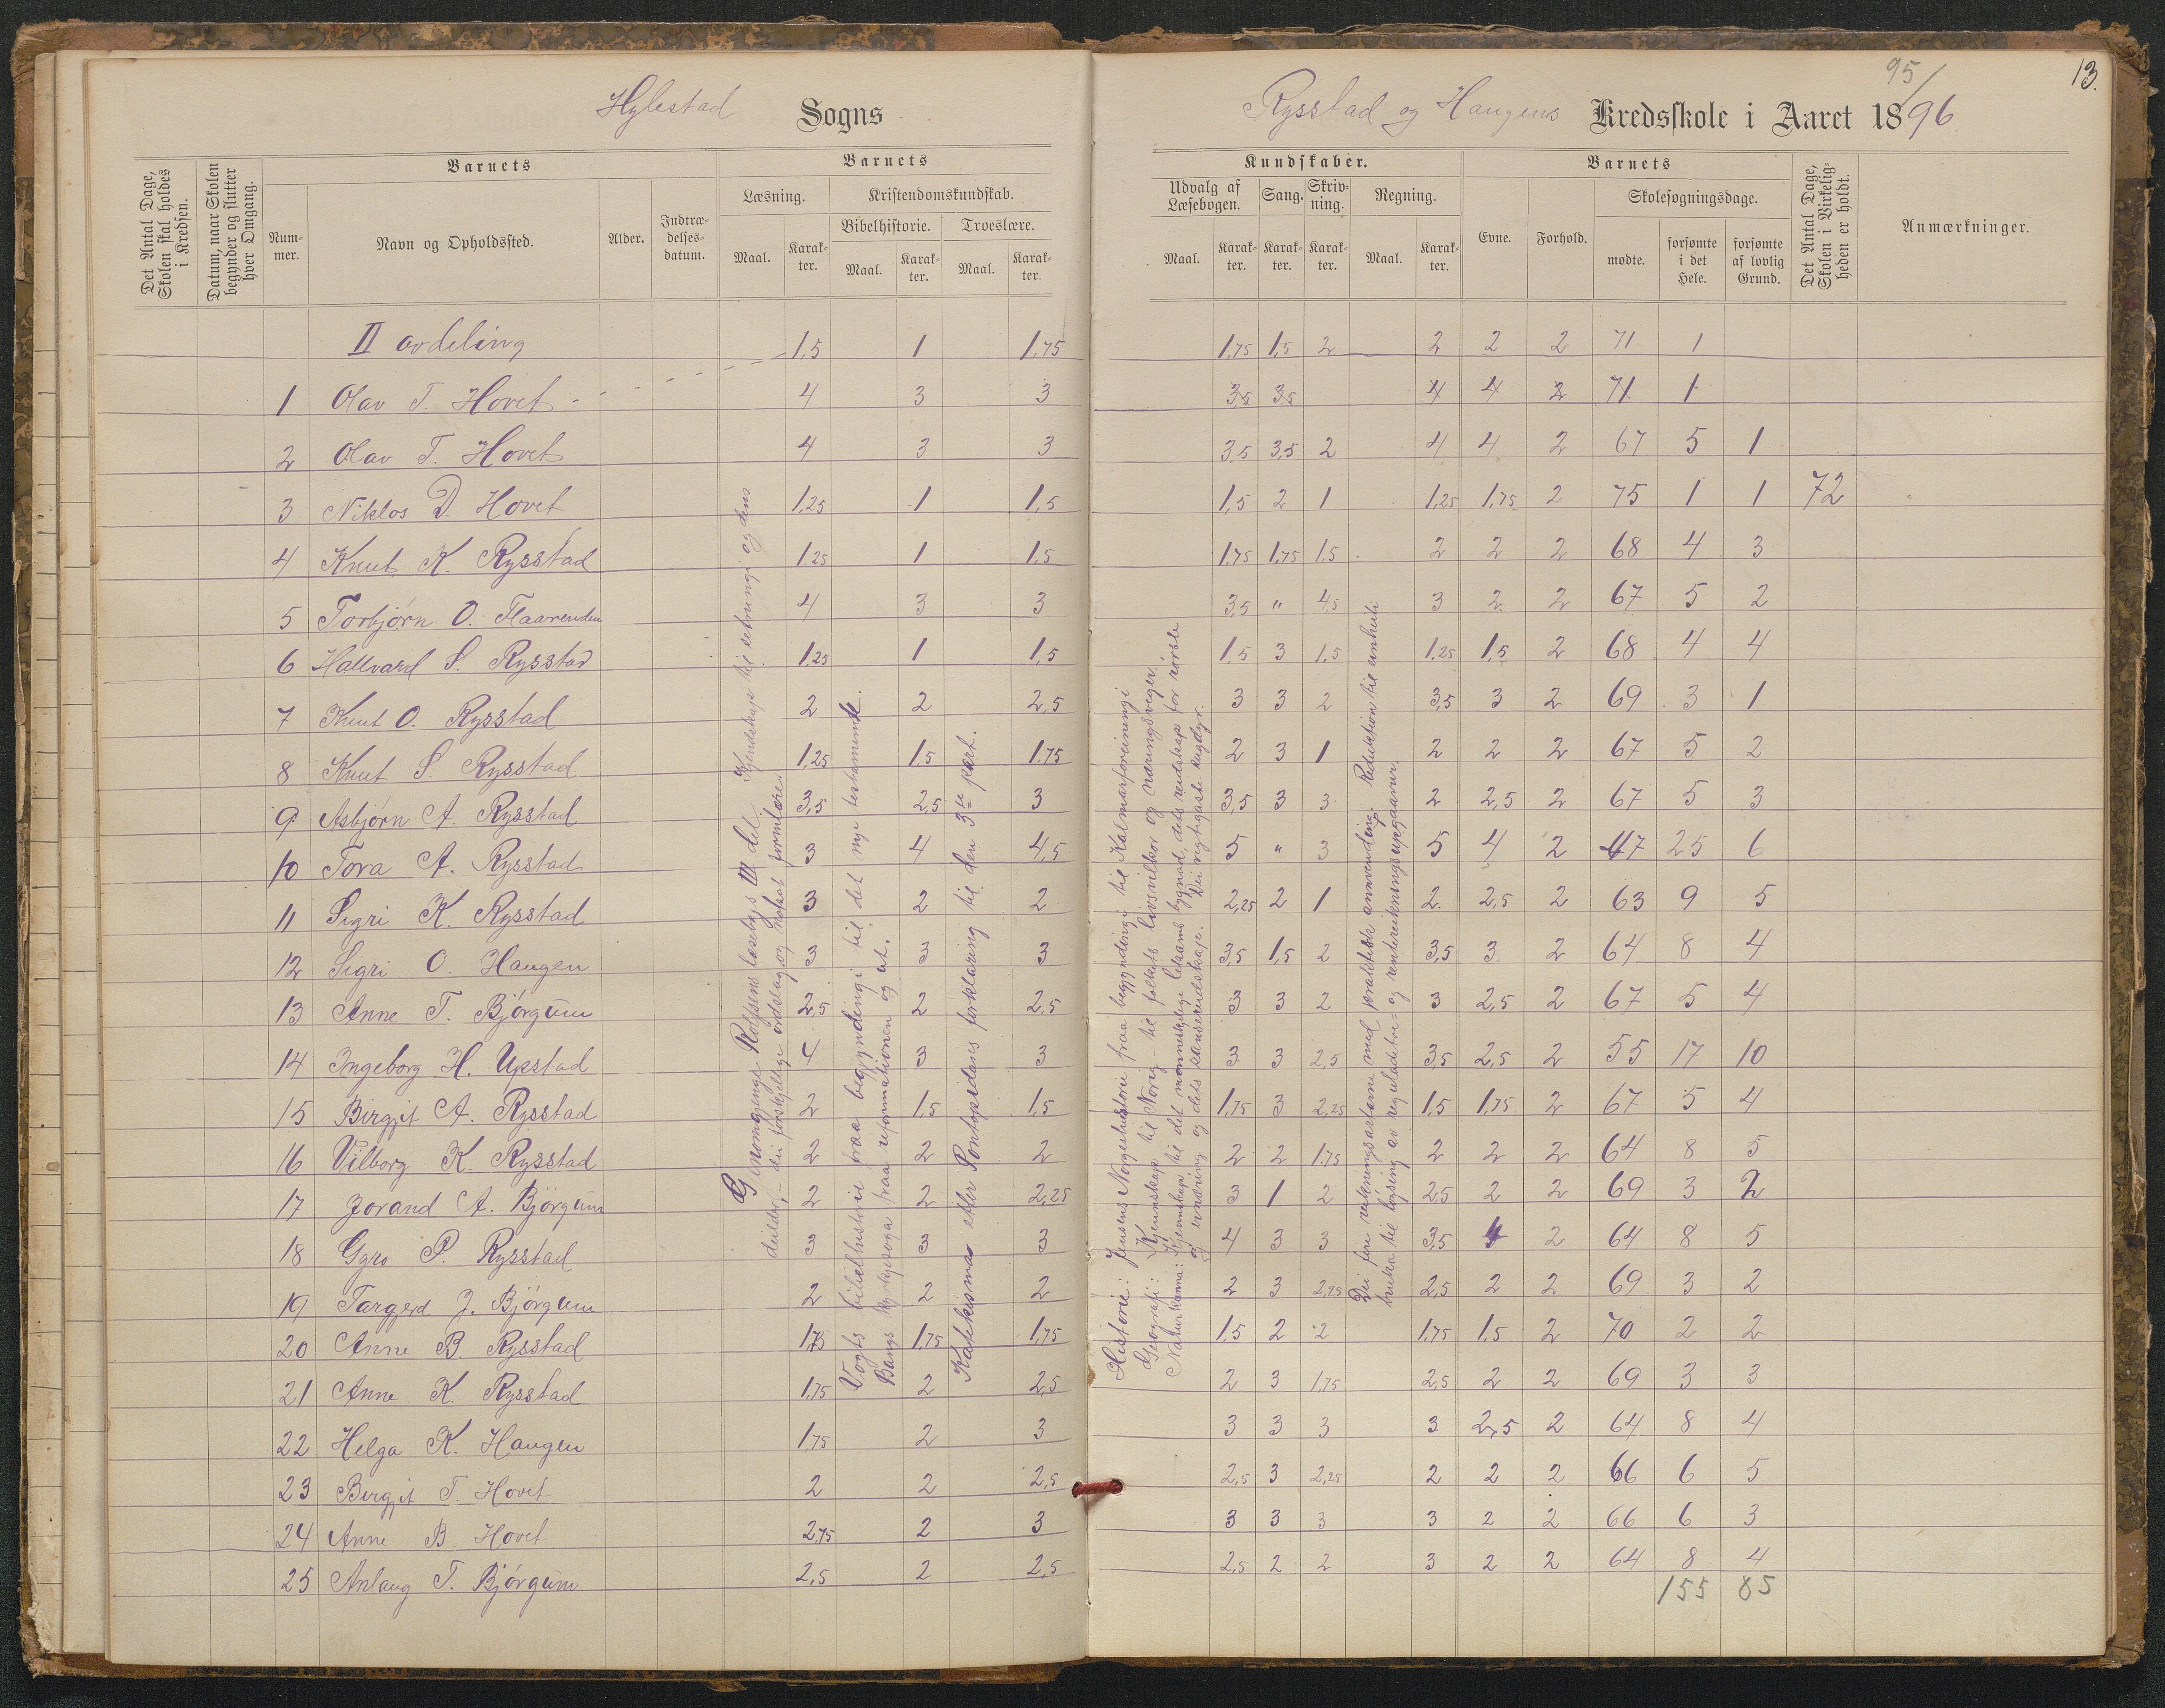 Hylestad Sogns
Rysstad og Haugens Kredsskole i Aaret 1895/96
13.
Det Antal Dage, Skolen skal holdes i Kredsen.
Datum, naar Skolen begynder og slutter hver Omgang.
Barnets
Nummer.
Navn og Opholdssted.
Alder.
Indtrædelsesdatum.
Barnets
Læsning.
Maal.
Karakter.
Kristendomskundskab.
Bibelhistorie.
Maal.
Karakter.
Troeslære.
Maal.
Karakter.
Kundskaber.
Udvalg af Læsebogen.
Maal.
Karakter.
Sang.
Karakter.
Skrivning.
Karakter.
Regning.
Maal.
Karakter.
Barnets
Evne.
Forhold.
Skolesøgningsdage.
mødte.
forsømte i det Hele.
forsømte af lovlig Grund.
Det Antal Dage, Skolen i Virkeligheden er holdt.
Anmærkninger.
II avdeling 1,5 1 1,75 1,75 1,5 2 2 2 2 71 1
1 Olav T. Hovet 4 3 3 3,5 3,5 4 4 2 71 1
2 Olav T. Hovet 4 3 3 3,5 3,5 2 4 4 2 67 5 1
3 Niklos D. Hovet 1,25 1 1,5 1,5 2 1 1,25 1,75 2 75 1 1 72
4 Knut K. Rysstad 1,25 1 1,5 1,75 1,75 1,5 2 2 2 68 4 3
5 Torbjörn O. Flaarenden 4 3 3 3,5 " 4,5 3 2 2 67 5 2
6 Hallvard S. Rysstad 1,25 1 1,5 1,5 3 1,5 1,25 1,5 2 68 4 4
7 Knut O. Rysstad 2 2 2,5 3 3 2 3,5 3 2 69 3 1
8 Knut S. Rysstad 1,25 1,5 1,75 2 3 1 2 2 2 67 5 2
9 Asbjörn A. Rysstad 3,5 2,5 3 3,5 3 3 2 2,5 2 67 5 3
10 Tora A. Rysstad 3 4 4,5 5 " 3 5 4 2 47 25 6
11 Sigri K. Rysstad 3 2 2 2,25 2 1 2 2,5 2 63 9 5
12 Sigri O. Haugen 3 3 3 3,5 1,5 2 3,5 3 2 64 8 4
13 Anne T. Björgum 2,5 2 2,5 3 3 2 3 2,5 2 67 5 4
14 Ingeborg H. Upstad 4 3 3 3 3 2,5 3,5 2,5 2 55 17 10
15 Birgjit A. Rysstad 2 1,5 1,5 1,75 3 2,25 1,5 1,75 2 67 5 4
16 Vilborg K. Rysstad 2 2 2 2 2 1,75 2 2 2 64 8 5
17 Jorand A. Björgum 2 2 2,25 3 1 2 2,5 2 2 69 3 2
18 Gyro P. Rysstad 3 3 3 4 3 3 3,5 4 2 64 8 5
19 Targjerd J. Björgum 2 2 2 2 3 2,25 2,5 2 2 69 3 2
20 Anne B. Rysstad 1,75 1,75 1,75 1,5 2 2 1,75 1,5 2 70 2 2
21 Anne K. Rysstad 1,75 2 2,5 2 3 1,75 2,5 2 2 69 3 3
22 Helga K. Haugen 1,75 2 3 3 3 3 3 2,5 2 64 8 4
23 Birgjit T. Hovet 2 2 2,5 2,5 3 2,25 2 2 2 66 6 5
24 Anne B. Hovet 2,75 2 3 3 3 3 3 2 2 66 6 3
25 Anlaug T. Björgum 2,5 2 2,5 2,5 2 2 3 2 2 64 8 4
155 85
Gjenomgjenge Rolfsens læseboks III del. Kjendskap til setningi og dens
deilder, – dei forskjellige ordslag og notat formlære.
Vogts bibelhistorie fraa begyndingi til det nye testamente.
Bangs kyrkjesoga fraa reformationen og ut.
Katekismas eller Pontopidans forklaring til den 3die part.
Historie: Jensens Norgeshistorie fraa begyndingi til Kalmarforeiningi
Geografi: Kjennskap til Norig – til folkets livsvilkor og næringsveger.
Naturkunna: Kjennskap til det menneskelege lekams bygnad, dets reidskap for rørsle
og ernæring og dets sansereidskape. Dei vigtigaste rygdyr.
Dei fire rekningsartarne med praktisk annvending. Reduktion til einheit
bruka til löysing av reguladetri- og rentereikningsuppgaavur.